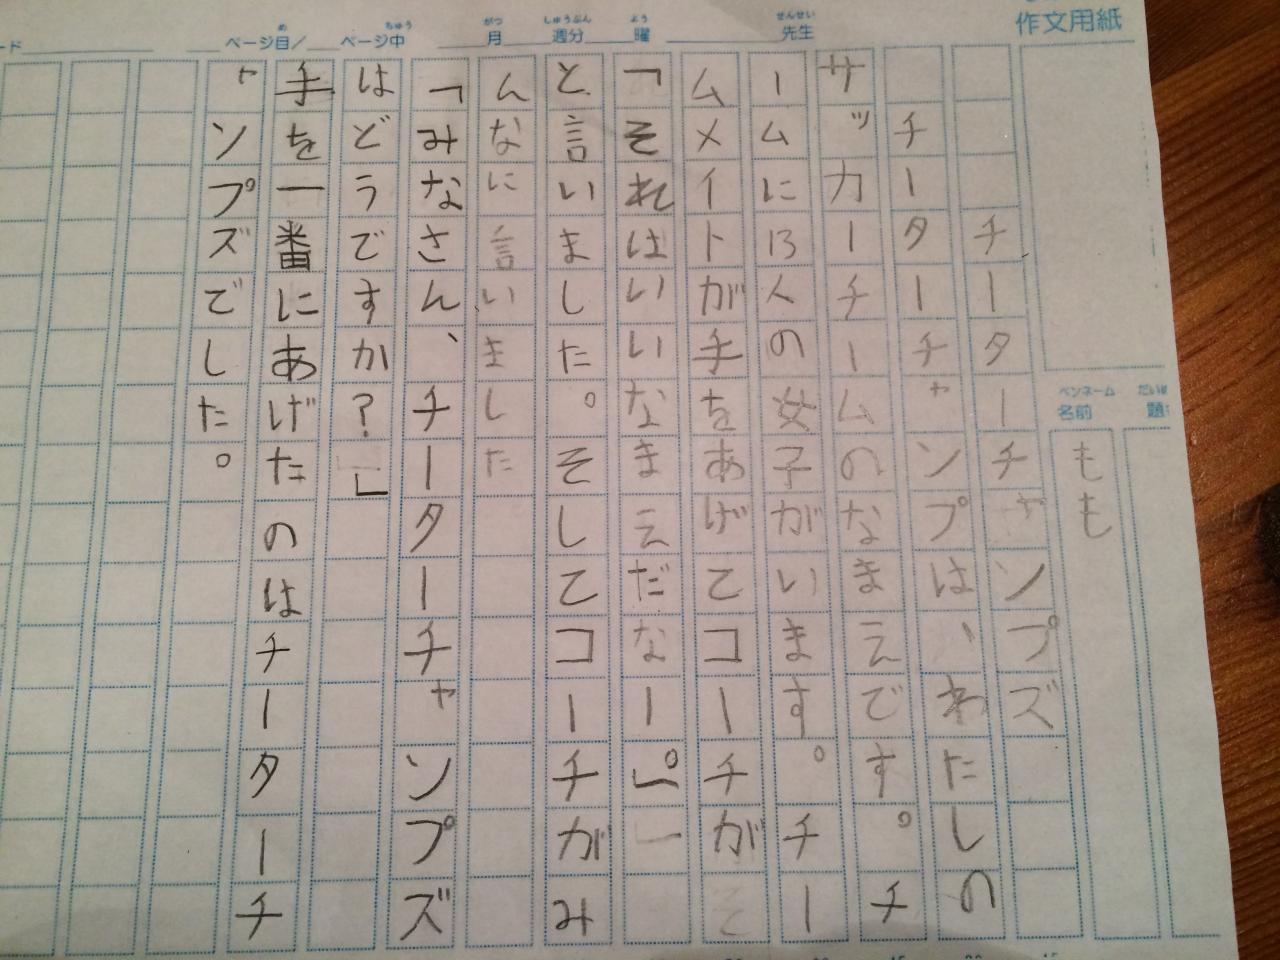 作文用紙
せんせい
先生
よう
曜
しゅうぶん
週分
がつ
月
ちゅう
ページ中
め
ページ目/
ード
だい
題
ペンネーム
名前
もも
チーターチャンプズ
チーターチャンプは、わたしの
サッカーチームのなまえです。チ
ームに13人の女子がいます。チー
ムメイトが手をあげてコーチが
「それはいいなまえだなー。」
と言いました。そしてコーチがみ
んなに言いました
「みなさん、チーターチャンプズ
はどうですか?」
手を一番にあげたのはチーターチ
ャンプズでした。